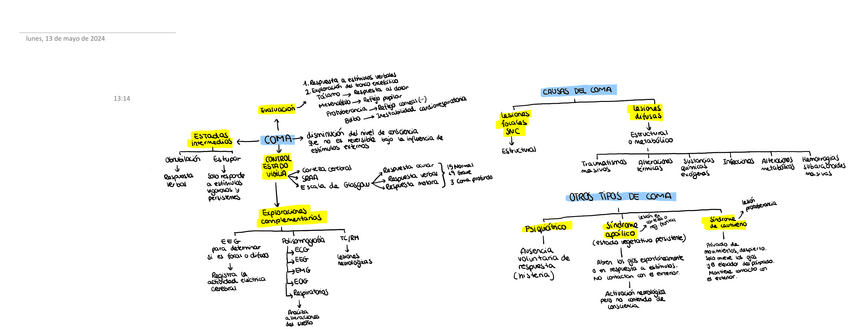 lunes, 13 de mayo de 2024
13:14
1. Respuesta a estímulos verbales
2. Exploración del tronco encefálico
Tálamo → Respuesta al dolor
Mesencéfalo → Reflejo pupilar
Protuberancia → Reflejo corneal (-)
Bulbo → Inestabilidad cardiorrespiratoria
Evaluación
Estadios
intermedios
Obnubilación
Respuesta
verbal
Estupor
Solo responde
a estímulos
vigorosos y
persistentes
COMA
disminución del nivel de consciencia
que no es reversible bajo la influencia de
estímulos externos
CONTROL
ESTADO
VIGILIA
Corteza cerebral
SRAA
Escala de Glasgow
Respuesta ocular
Respuesta verbal
Respuesta motora
15 Normal
<9 Grave
3 Coma profundo
Exploraciones
complementarias
EEG
para determinar
si es focal o difuso
Registra la
actividad eléctrica
cerebral
Polisomnografía
ECG
EEG
EMG
EOG
Respiratorios
Analiza
alteraciones
del sueño
TC/RM
Lesiones
neurológicas
CAUSAS DEL COMA
Lesiones
focales
SNC
Estructural
Lesiones
difusas
Estructural
o metabólico
Traumatismos
masivos
Alteraciones
térmicas
Sustancias
químicas
exógenas
Infecciones
Alteraciones
metabólicas
Hemorragias
subaracnoideas
masivas
OTROS TIPOS DE COMA
Psiquiátrico
Ausencia
voluntaria de
respuesta
(histeria)
Síndrome
apálico
(estado vegetativo persistente)
Abren los ojos espontáneamente
o en respuesta a estímulos.
No contactan con el exterior.
Activación neurológica
pero no contenido de
consciencia
Síndrome
de cautiverio
lesión
protuberancia
Privado de
movimientos, despierto.
Solo mueve los ojos
y el elevador del párpado.
Mantiene contacto con
el exterior.